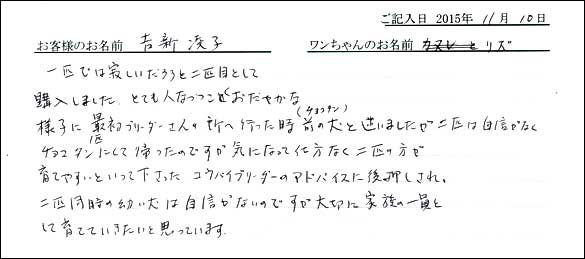 ご記入日 2015年 11月 10日
お客様のお名前 吉新 涼子 ワンちゃんのお名前 リズ
一匹では寂しいだろうと二匹目として
購入しました。とても人なつっこくおだやかな
(チョコタン)
様子に最初ブリーダーさんの所へ行った時前の犬と迷いましたが二匹は自信がなく
チョコタン匹にして帰ったのですが気になって仕方なく二匹の方が
育てやすいといって下さった コウバイブリーダーのアドバイスに後押しされ、
二匹同時の幼い犬は自信がないのですが大切に家族の一員と
して育てていきたいと思っています。